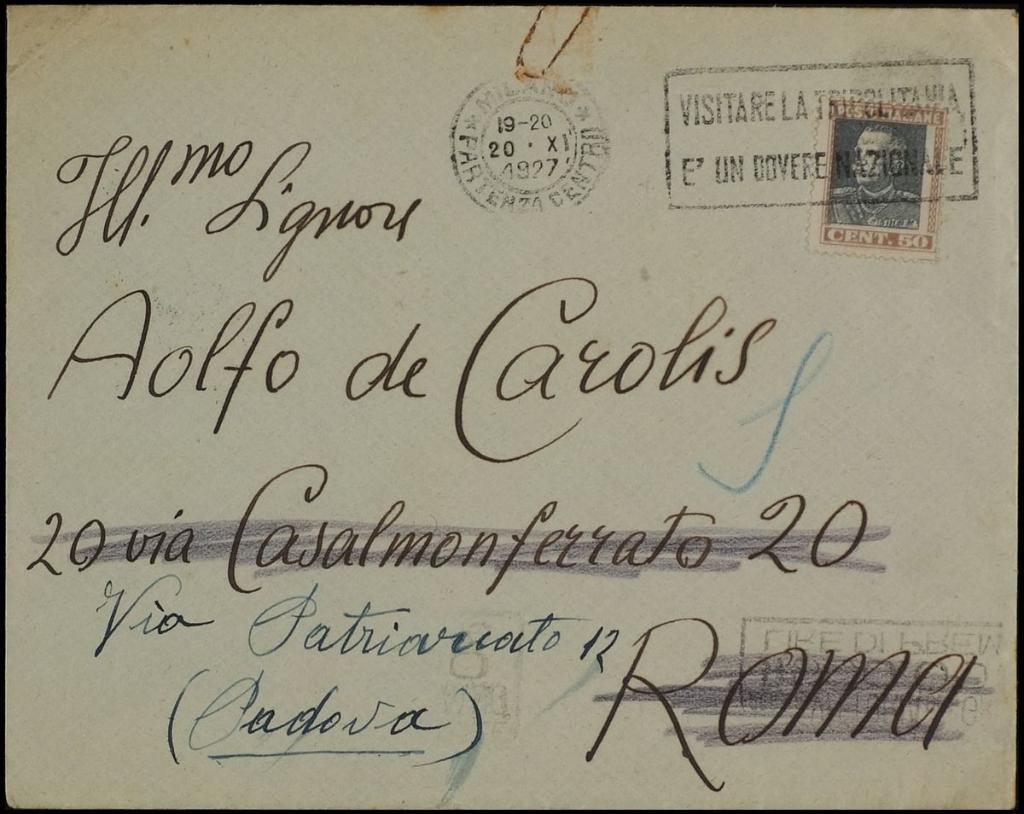 MILANO
19-20
20 · XI
1927
PARTENZA CENTRO
VISITARE LA TRIPOLITANIA
E' UN DOVERE NAZIONALE
CENT. 50
Ill.mo Signore
Adolfo de Carolis
20 via Casalmonferrato 20
Via Patriarcato 12
Roma
(Padova)
LIRE DI PREMI